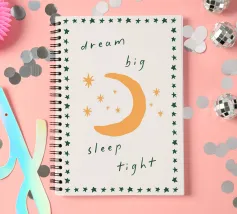 dream
big
sleep
tight